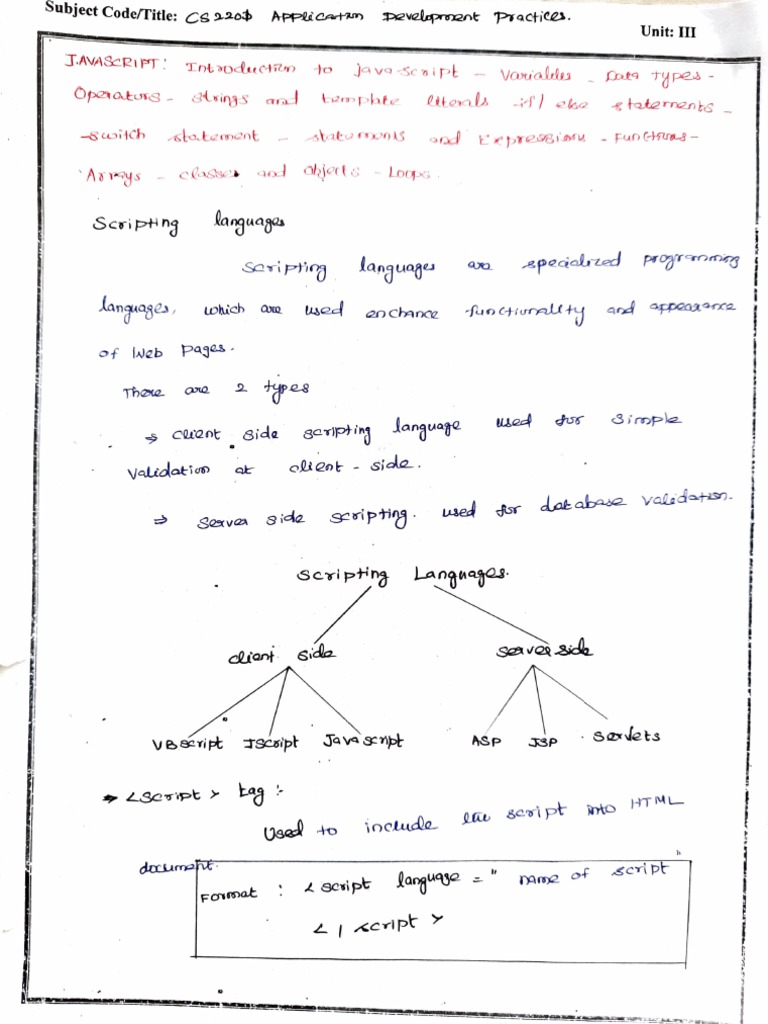 Subject Code/Title: CS2208 Application Development Practices.
Unit: III
JAVASCRIPT: Introduction to java-script - Variables - Data types -
Operators - strings and template literals - if/else statements -
switch statement - statements and Expressions - Functions -
Arrays - classes and objects - Loops.
Scripting languages
Scripting languages are specialized programming
languages, which are used enchance functionality and appearance
of Web Pages.
There are 2 types
⇒ client side scripting language used for simple
validation at client-side.
⇒ server side scripting. used for database validation.
Scripting Languages.
client side server side
VBscript JScript Javascript ASP JSP servlets
→ <script> tag :-
Used to include the script into HTML
document.
Format : < script language = " name of script "
< / script >